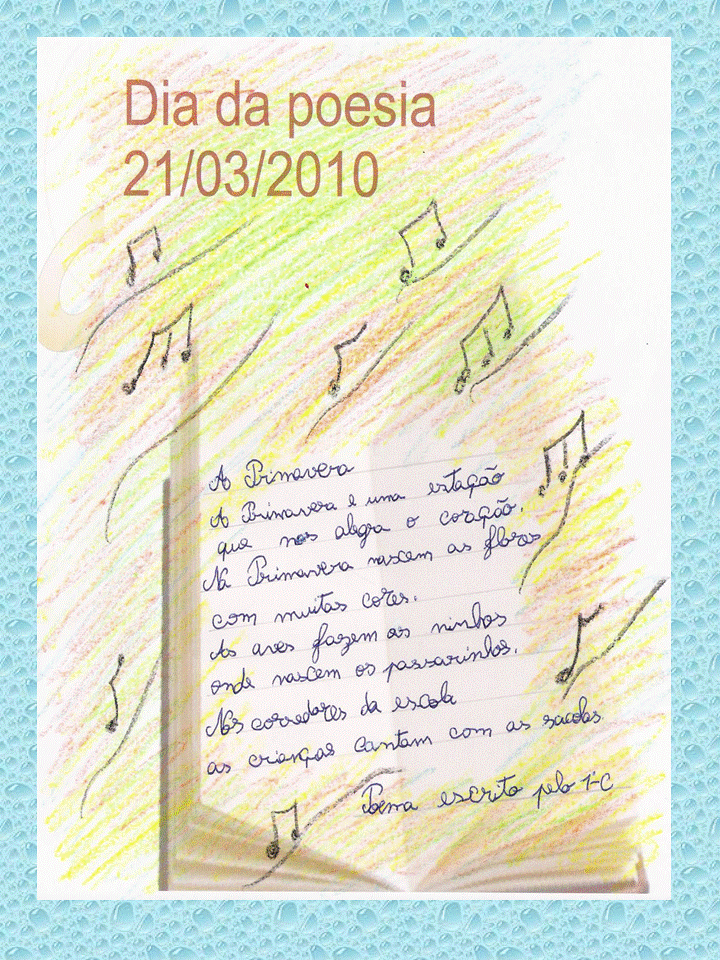 Dia da poesia
21/03/2010
A Primavera
A Primavera é uma estação
que nos alegra o coração.
Na Primavera nascem as flores
com muitas cores.
As aves fazem os ninhos
onde nascem os passarinhos.
Nos corredores da escola
as crianças cantam com as sacolas.
Poema escrito pelo 1ºC